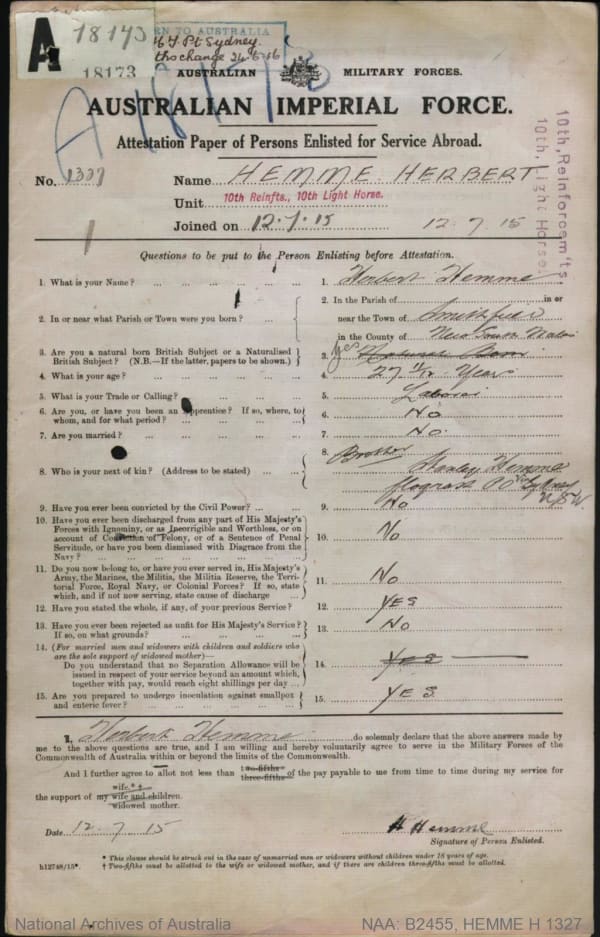 A 18173 RN TO AUSTRALIA
Pt Sydney
18173
AUSTRALIAN MILITARY FORCES.
AUSTRALIAN IMPERIAL FORCE.
Attestation Paper of Persons Enlisted for Service Abroad.
No. Name HEMME HERBERT
Unit 10th Reinfts., 10th Light Horse.
Joined on 12.7.15 12.7.15
10th, Reinforcem'ts
10th, Light Horse.
Questions to be put to the Person Enlisting before Attestation.
1. What is your Name? ... 1. Herbert Hemme
2. In or near what Parish or Town were you born? ... 2. In the Parish of in or
near the Town of
in the County of New South Wales
3. Are you a natural born British Subject or a Naturalised
British Subject? (N.B.—If the latter, papers to be shown.) 3. Yes Natural Born
4. What is your age? ... 4. 27 Years
5. What is your Trade or Calling? ... 5.
6. Are you, or have you been an Apprentice? If so, where, to
whom, and for what period? ... 6. No
7. Are you married? ... 7. No.
8. Who is your next of kin? (Address to be stated) ... 8. Brother
Hemme
P.O. Sydney
N.S.W.
9. Have you ever been convicted by the Civil Power? ... 9. No
10. Have you ever been discharged from any part of His Majesty's
Forces with Ignominy, or as Incorrigible and Worthless, or on
account of Conviction of Felony, or of a Sentence of Penal
Servitude, or have you been dismissed with Disgrace from the
Navy? ... 10. No
11. Do you now belong to, or have you ever served in, His Majesty's
Army, the Marines, the Militia, the Militia Reserve, the Terri-
torial Force, Royal Navy, or Colonial Forces? If so, state
which, and if not now serving, state cause of discharge ... 11. No
12. Have you stated the whole, if any, of your previous Service? 12. YES
13. Have you ever been rejected as unfit for His Majesty's Service?
If so, on what grounds? ... 13. No
14. (For married men and widowers with children and soldiers who
are the sole support of widowed mother)—
Do you understand that no Separation Allowance will be
issued in respect of your service beyond an amount which,
together with pay, would reach eight shillings per day ... 14. YES
15. Are you prepared to undergo inoculation against smallpox
and enteric fever? ... 15. YES
I, Herbert Hemme do solemnly declare that the above answers made by
me to the above questions are true, and I am willing and hereby voluntarily agree to serve in the Military Forces of the
Commonwealth of Australia within or beyond the limits of the Commonwealth.
And I further agree to allot not less than two-fifths three-fifths of the pay payable to me from time to time during my service for
wife.*†
the support of my wife and children.
widowed mother.
Date 12.7.15 H Hemme
Signature of Person Enlisted.
* This clause should be struck out in the case of unmarried men or widowers without children under 18 years of age.
h12748/15*. † Two-fifths must be allotted to the wife or widowed mother, and if there are children three-fifths must be allotted.
National Archives of Australia NAA: B2455, HEMME H 1327